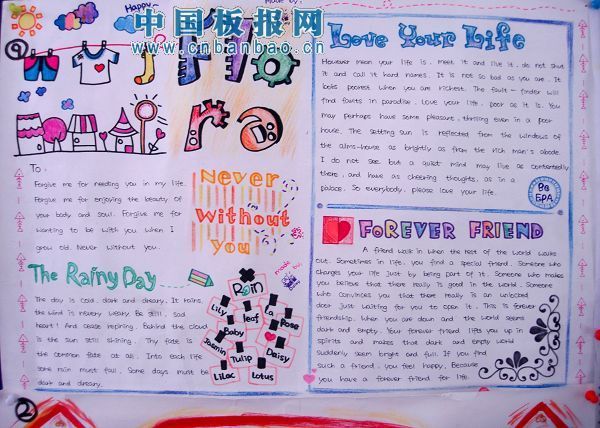 中国板报网
www.cnbanbao.cn
Happy~
made by:
1
Flo
ra
Love Your Life
However mean your life is, meet it and live it, do not shut
it and call it hard names. It is not so bad as you are. It
looks poorest when you are richest. The fault-finder will
find faults in paradise. Love your life, poor as it is. You
may perhaps have some pleasant, thrilling even in a poor
house. The setting sun is reflected from the windows of
the alms-house as brightly as from the rich man's abode.
I do not see but a quiet mind may live as contentedly
there, and have as cheering thoughts, as in a
palace. So everybody, please love your life.
To:
Forgive me for needing you in my life.
Forgive me for enjoying the beauty of
your body and soul. Forgive me for
wanting to be with you when I
grow old. Never without you.
Never
Without
you
The Rainy Day
The day is cold, dark and dreary. It rains,
the wind is never weary. Be still, sad
heart! And cease repining. Behind the cloud
is the sun still shining. Thy fate is
the common fate of all. Into each life
some rain must fall. Some days must be
dark and dreary.
made by
Rain
Lily
leaf
La
Rose
Baby
Jasmin
Tulip
Daisy
Lilac
Lotus
FOREVER FRIEND
A friend walk in when the rest of the world walks
out. Sometimes in life, you find a special friend. Someone who
changes your life just by being part of it. Someone who makes
you believe that there really is good in the world. Someone
who convinces you that there really is an unlocked
door just waiting for you to open it. This is forever
friendship. When you are down and the world seems
dark and empty. Your forever friend lifts you up in
spirits and makes that dark and empty world
suddenly seem bright and full. If you find
such a friend, you feel happy. Because
you have a forever friend for life.
2